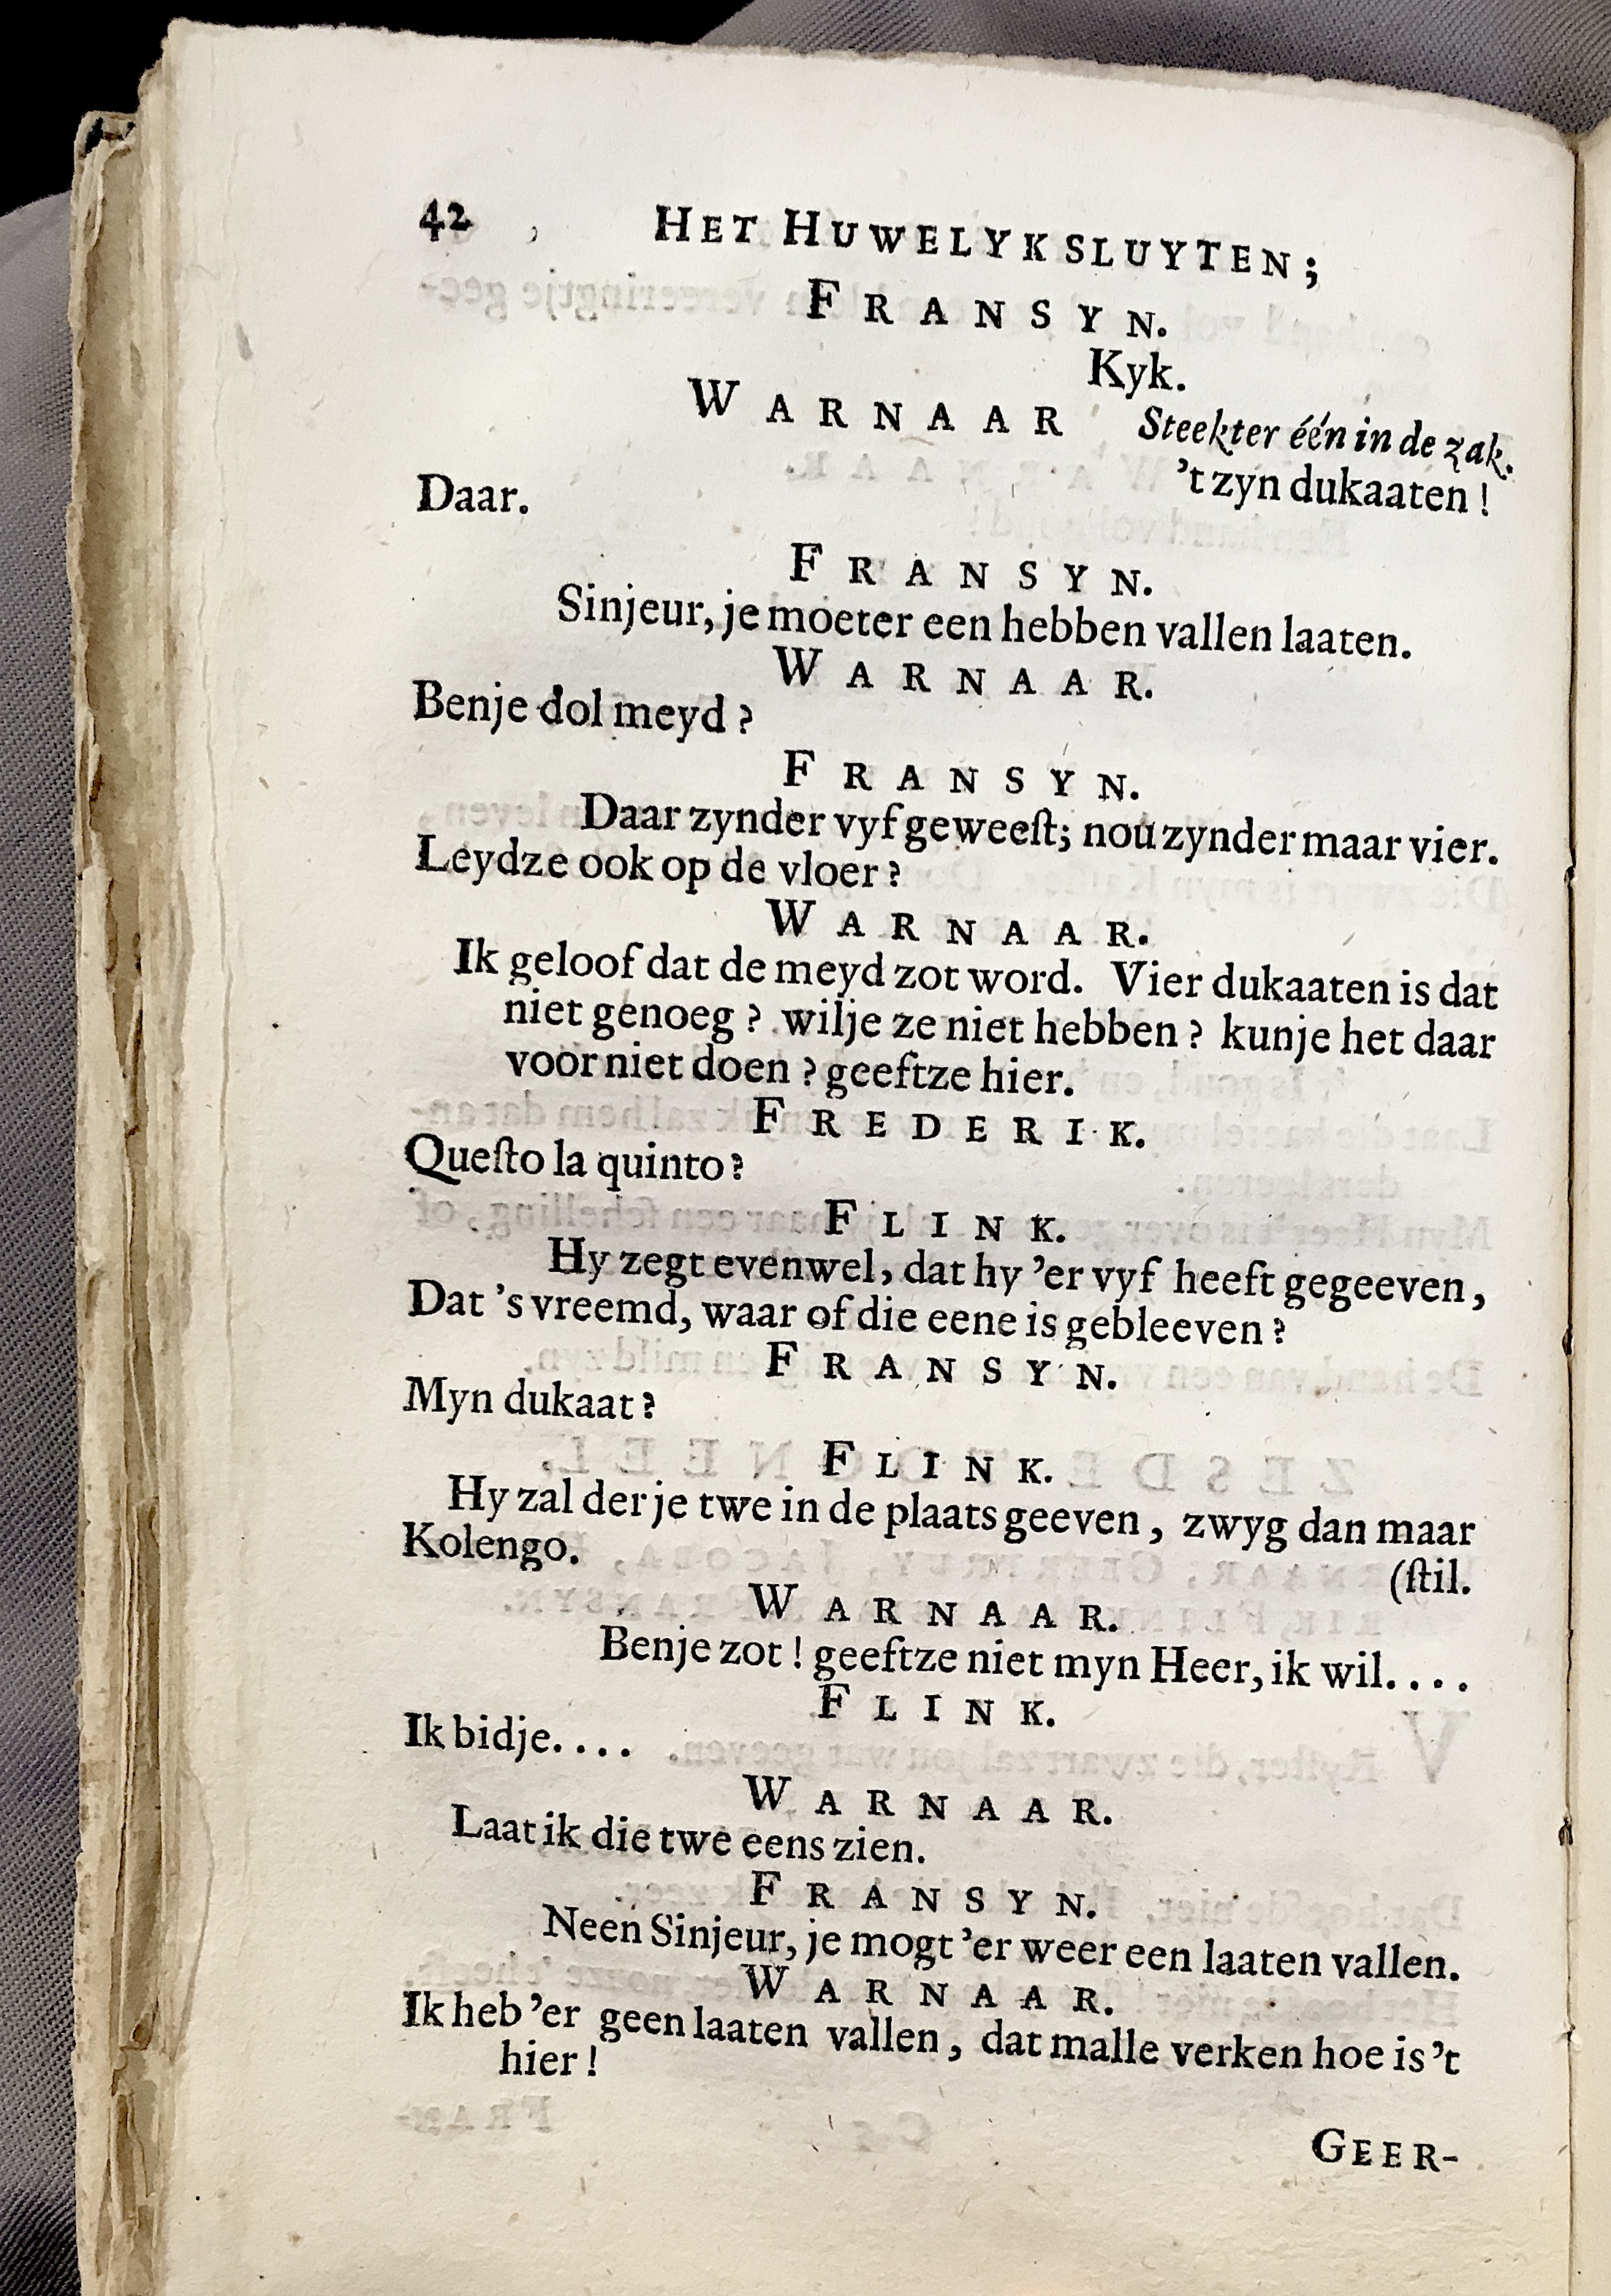 42 HET HUWELYKSLUYTEN;
FRANSYN.
Kyk.
WARNAAR Steekter één in de zak.
Daar. 't zyn dukaaten!
FRANSYN.
Sinjeur, je moeter een hebben vallen laaten.
WARNAAR.
Benje dol meyd?
FRANSYN.
Daar zynder vyf geweeſt; nou zynder maar vier.
Leydze ook op de vloer?
WARNAAR.
Ik geloof dat de meyd zot word. Vier dukaaten is dat
niet genoeg? wilje ze niet hebben? kunje het daar
voor niet doen? geeftze hier.
FREDERIK.
Queſto la quinto?
FLINK.
Hy zegt evenwel, dat hy 'er vyf heeft gegeeven,
Dat 's vreemd, waar of die eene is gebleeven?
FRANSYN.
Myn dukaat?
FLINK.
Hy zal der je twe in de plaats geeven, zwyg dan maar
Kolengo. (ſtil.
WARNAAR.
Benje zot! geeftze niet myn Heer, ik wil....
FLINK.
Ik bidje....
WARNAAR.
Laat ik die twe eens zien.
FRANSYN.
Neen Sinjeur, je mogt 'er weer een laaten vallen.
WARNAAR.
Ik heb 'er geen laaten vallen, dat malle verken hoe is 't
hier!
GEER-